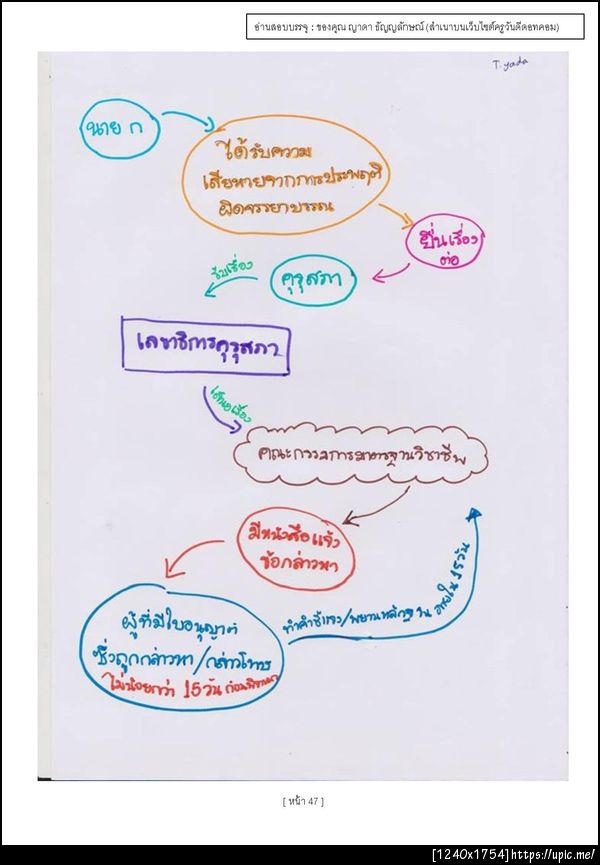 อ่านสอบบรรจุ : ของคุณ ญาดา ธัญญลักษณ์ (สำเนาบนเว็บไซต์ครูวันดีดอทคอม)
T.yada
นาย ก
ได้รับความ
เสียหายจากการประพฤติ
ผิดจรรยาบรรณ
ยื่นเรื่อง
ต่อ
คุรุสภา
รับเรื่อง
เลขาธิการคุรุสภา
เสนอเรื่อง
คณะกรรมการมาตรฐานวิชาชีพ
มีหนังสือแจ้ง
ข้อกล่าวหา
ผู้ที่มีใบอนุญาต
ซึ่งถูกกล่าวหา/กล่าวโทษ
ไม่น้อยกว่า 15 วัน ก่อนพิจารณา
ทำคำชี้แจง/พยานหลักฐาน ภายใน 15 วัน
[ หน้า 47 ]
[1240x1754]https://upic.me/